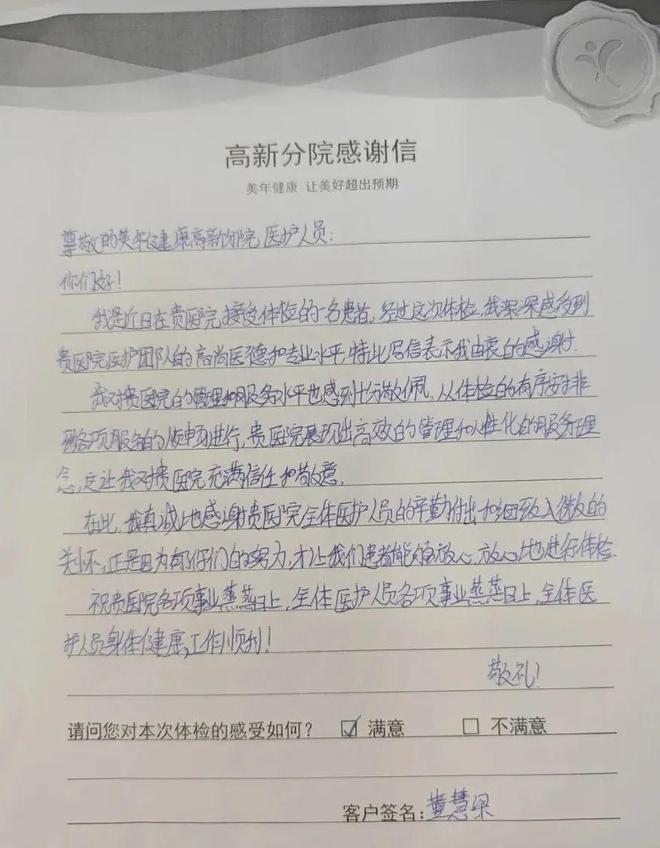 高新分院感谢信
美年健康 让美好超出预期
尊敬的美年健康高新分院医护人员:
你们好!
我是近日在贵医院接受体检的一名患者。经过这次体检,我深深感受到
贵医院医护团队的高尚医德和专业水平,特此写信表示我由衷的感谢!
我对贵医院的管理和服务水平也感到十分敬佩。从体检的有序安排
到各项服务的顺畅进行,贵医院展现出高效的管理和人性化的服务理
念,这让我对贵医院充满信任和敬意。
在此,我真诚地感谢贵医院全体医护人员的辛勤付出和细致入微的
关怀,正是因为有你们的努力,才让我们患者能够放心,放心地进行体检
祝贵医院各项事业蒸蒸日上,全体医护人员各项事业蒸蒸日上,全体医
护人员身体健康,工作顺利!
敬礼!
请问您对本次体检的感受如何? ☑ 满意 □ 不满意
客户签名:黄慧梁